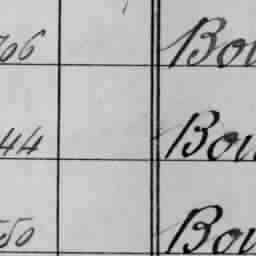 766 Bou
44 Bou
50 Bou